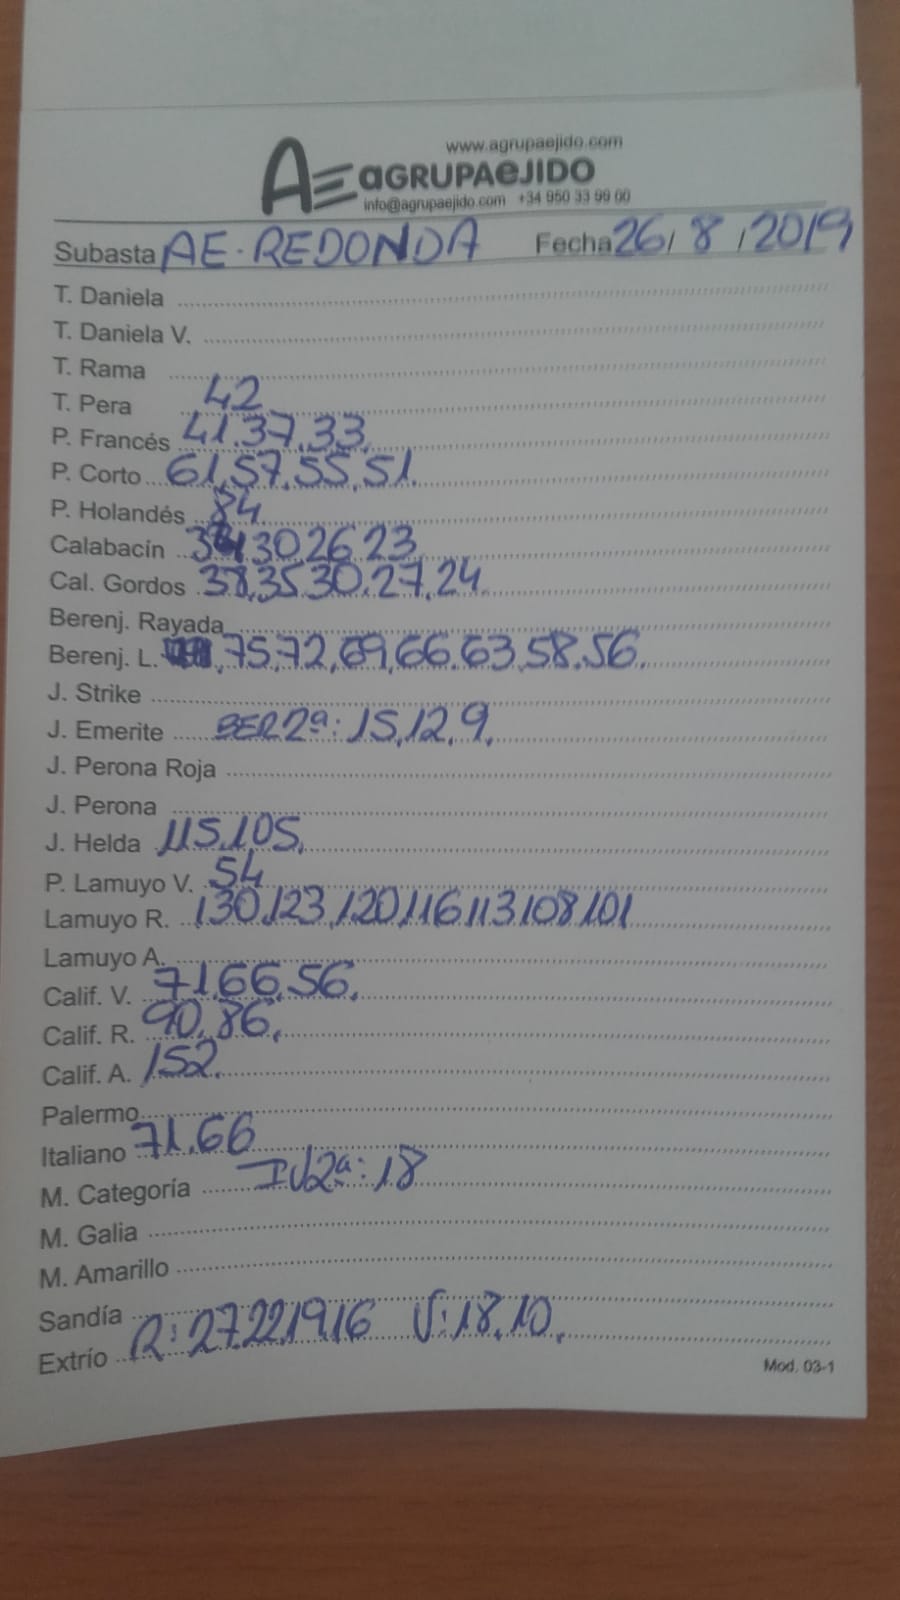 www.agrupaejido.com
AE aGRUPAeJIDO
info@agrupaejido.com +34 950 33 99 00
Subasta AE-REDONDA Fecha 26/8/2019
T. Daniela
T. Daniela V.
T. Rama
T. Pera 42
P. Francés 41.37.33.
P. Corto 61,57.55,51.
P. Holandés 84
Calabacín 30.26.23
Cal. Gordos 38,35.30.27,24.
Berenj. Rayada
Berenj. L. ,75,72,69,66.63,58.56.
J. Strike
J. Emerite BER 2ª: 15,12,9.
J. Perona Roja
J. Perona
J. Helda 115,105.
P. Lamuyo V. 54
Lamuyo R. 130,123,120,116,113,108,101
Lamuyo A.
Calif. V. 71,66,56.
Calif. R. 90,86.
Calif. A. 152.
Palermo
Italiano 71.66
M. Categoría 2ª: 18
M. Galia
M. Amarillo
Sandía
Extrío R: 27.22.19.16 V: 18.10.
Mod. 03-1